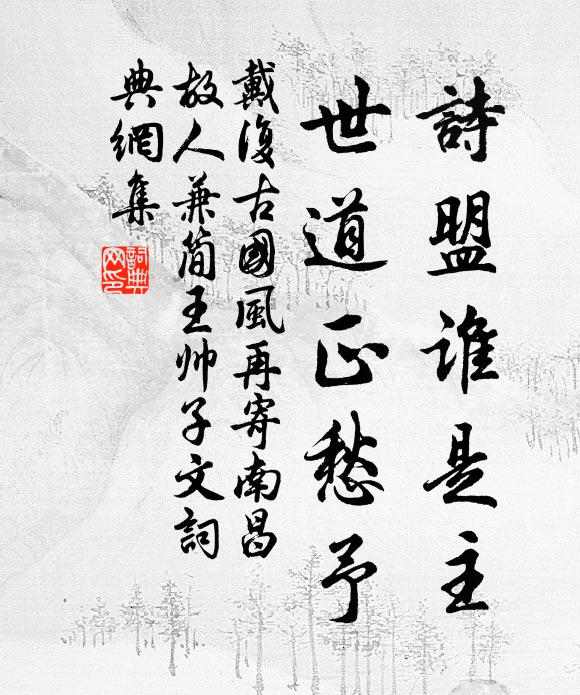 詩盟谁是主
世道正愁予
戴復古國風再寄南昌
故人兼简王帅子文詞
典網集
詞典網印